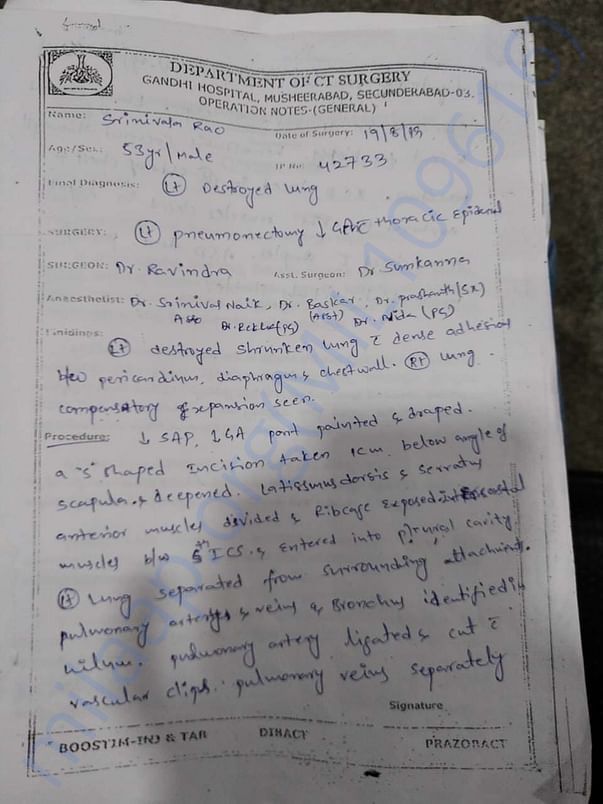 DEPARTMENT OF CT SURGERY
GANDHI HOSPITAL, MUSHEERABAD, SECUNDERABAD-03.
OPERATION NOTES-(GENERAL)
Name: Srinivasa Rao
Date of Surgery: 19/8/19
Age/Sex: 53yr/Male
IP No: 42733
Final Diagnosis: Lt Destroyed lung
SURGERY: Lt pneumonectomy ↓ GA c̄ thoracic Epidural
SURGEON: Dr. Ravindra Asst. Surgeon: Dr Sunkanna
Anaesthetist: Dr. Srinivas Naik, Dr. Baskar, Dr. prashanth (SR)
Dr. Rekha (PG) Dr. Nida (PG)
Findings:
Lt destroyed shrunken lung c̄ dense adhesions
b/w pericardium, diaphragm & chest wall. Rt lung
compensatory expansion seen.
Procedure: ↓ SAP, ↓ GA part painted & draped.
a "S" shaped Incision taken 1cm below angle of
scapula & deepened. Latissmus dorsis & serratus
anterior muscles divided & Ribcage exposed intercostal
muscles b/w 5th ICS & entered into plrural cavity.
Lt Lung separated from surrounding attachments.
pulmonary arterys & veins & Bronchus identified in
hilum. pulmonary artery ligated & cut c̄
vascular clips. pulmonary veins separately
Signature
BOOSTIM-INJ & TAB DIHACT PRAZORACT
milaap.org (MIL 109616)